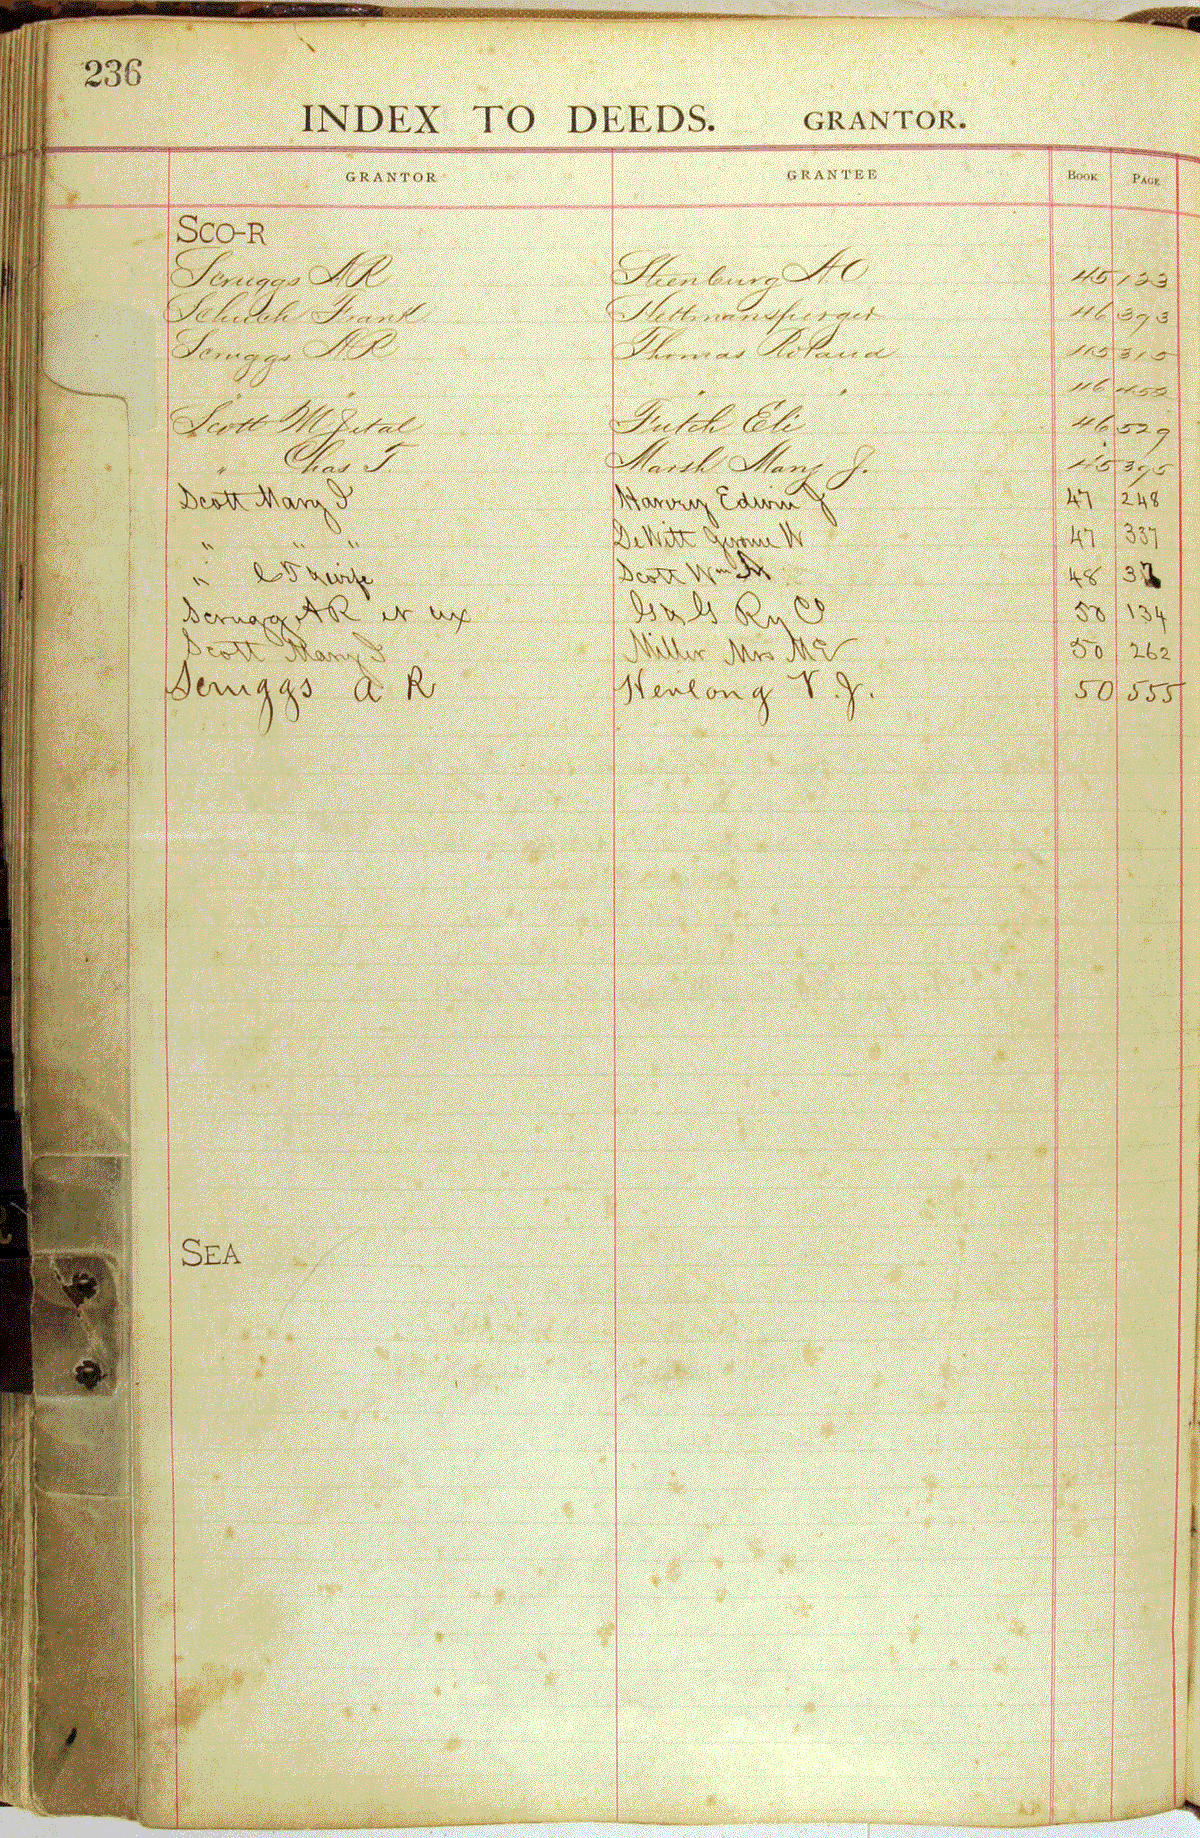 236
INDEX TO DEEDS. GRANTOR.
GRANTOR GRANTEE BOOK PAGE
SCO-R
Scruggs A R Steenburg A O 45 123
Frank 46 393
Scruggs A R Thomas Roland 45 315
" " " 46 452
Scott M J et al Futch Eli 46 529
" Chas T Marsh Mary J. 45 395
Scott Mary J Harvey Edwin J 47 248
" " " DeWitt Jerome W 47 337
" C T & wife Scott Wm 48
Scruggs A R et ux G & G Ry Co 50 134
Scott Mary J Miller Mrs M E 50 262
Scruggs A. R Henlong V. J. 50 555
SEA